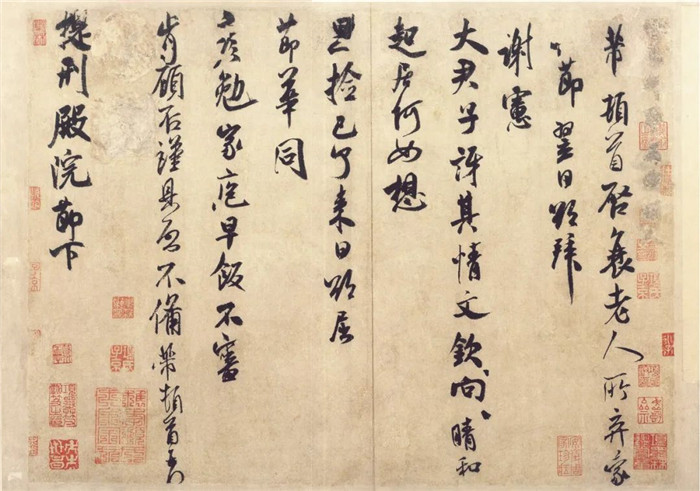 芾頓首啓衰老人所弃蒙
節翌日拜
謝憲
大君子訝其情文欽向晴和
起居何如想
撿已了来日屈
節華同
勉家庖早飯不審
肯顧否謹具啓不備芾頓首
提刑殿院節下